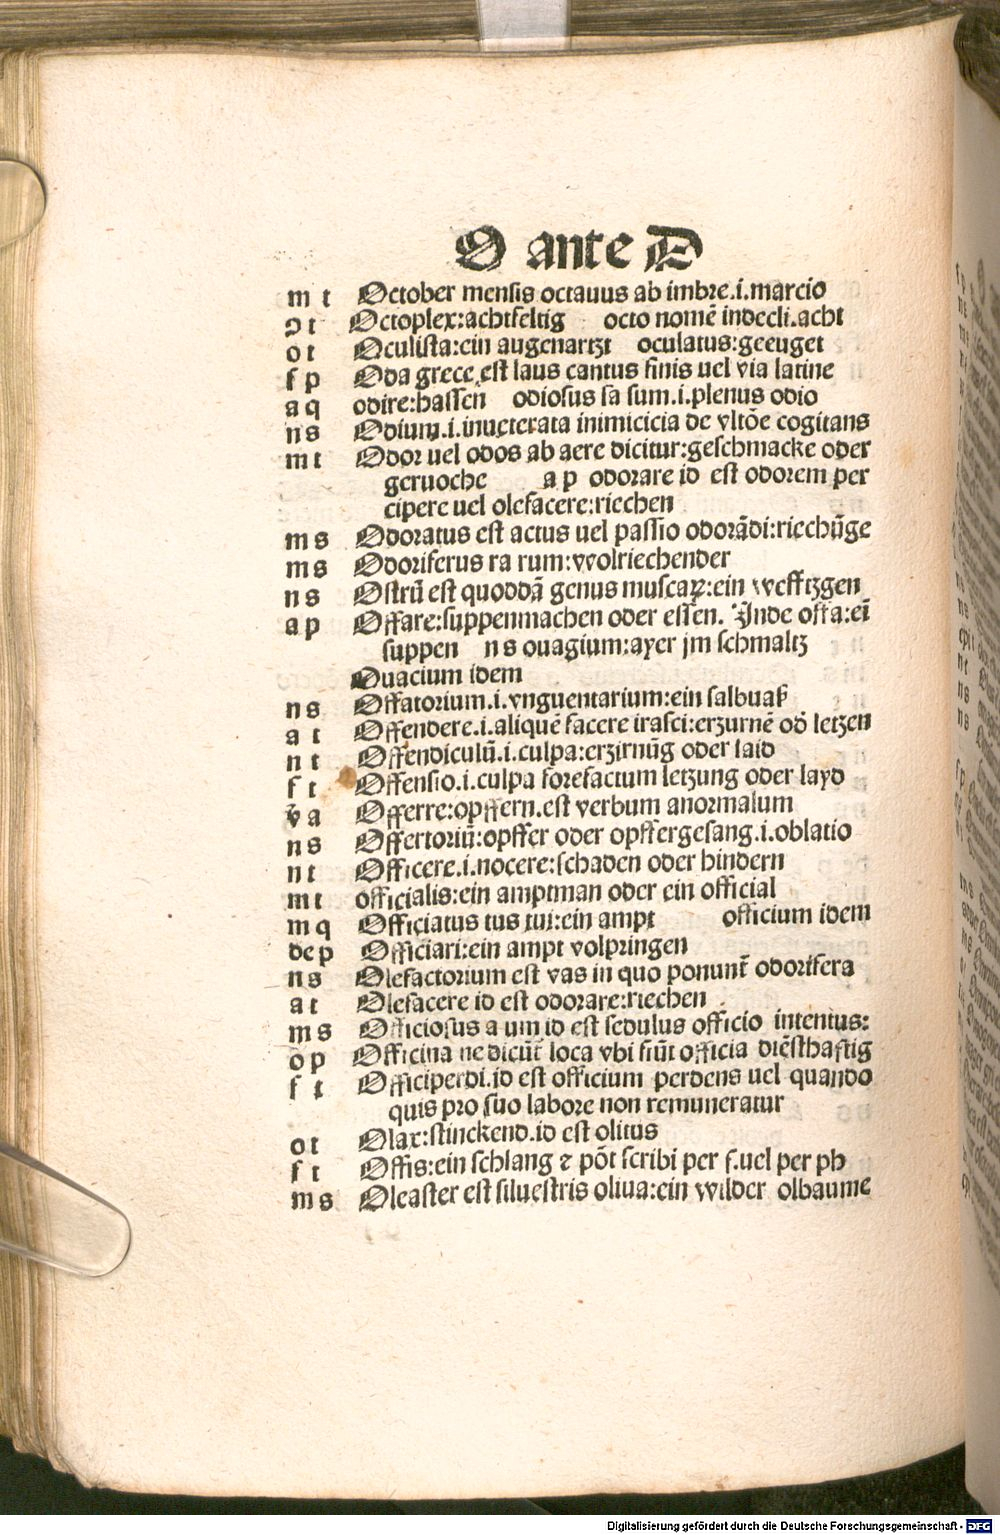 O ante D
m t October mensis octauus ab imbre.i.marcio
o t Octoplex:achtfeltig octo nomē indecli.acht
o t Oculista:ein augenartzt oculatus:geeuget
f p Oda grece est laus cantus finis uel via latine
a q odire:hassen odiosus sa sum.i.plenus odio
n s Odium.i.inueterata inimicicia de vltōe cogitans
m t Odor uel odos ab aere dicitur:geschmacke oder
geruoche a p odorare id est odorem per
cipere uel olefacere:riechen
m s Odoratus est actus uel passio odorādi:riechūge
m s Odoriferus ra rum:wolriechender
n s Ostrū est quoddā genus muscaꝝ:ein wefftzgen
a p Offare:suppenmachen oder essen. Inde offa:eī
suppen n s ouagium:ayer jm schmaltz
Ouacium idem
n s Offatorium.i.vnguentarium:ein salbuaß
a t Offendere.i.aliquē facere irasci:erzurnē od̄ letzen
n t Offendiculū.i.culpa:erzirnūg oder laid
f t Offensio.i.culpa forefactum letzung oder layd
v̄ a Offerre:opffern.est verbum anormalum
n s Offertoriū:opffer oder opffergesang.i.oblatio
n t Officere.i.nocere:schaden oder hindern
m t officialis:ein amptman oder ein official
m q Officiatus tus tui:ein ampt officium idem
de p Officiari:ein ampt volpringen
n s Olefactorium est vas in quo ponunt̄ odorifera
a t Olefacere id est odorare:riechen
m s Officiosus a um id est sedulus officio intentus:
o p Officina ne dicūt̄ loca vbi fiūt officia diēsthafftig
f t Officiperdi.id est officium perdens uel quando
quis pro suo labore non remuneratur
o t Olax:stinckend.id est olitus
f t Offis:ein schlang ⁊ pōt scribi per f.uel per ph
m s Oleaster est siluestris oliua:ein wilder olbaume
Digitalisierung gefördert durch die Deutsche Forschungsgemeinschaft - DFG